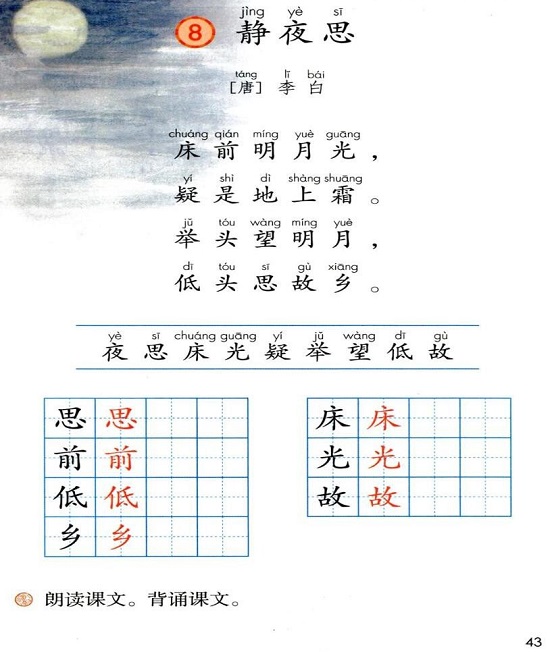 jìng yè sī
8 静夜思
táng lǐ bái
[唐] 李白
chuáng qián míng yuè guāng
床前明月光，
yí shì dì shàng shuāng
疑是地上霜。
jǔ tóu wàng míng yuè
举头望明月，
dī tóu sī gù xiāng
低头思故乡。
yè sī chuáng guāng yí jǔ wàng dī gù
夜思床光疑举望低故
思 思
前 前
低 低
乡 乡
床 床
光 光
故 故
朗读课文。背诵课文。
43